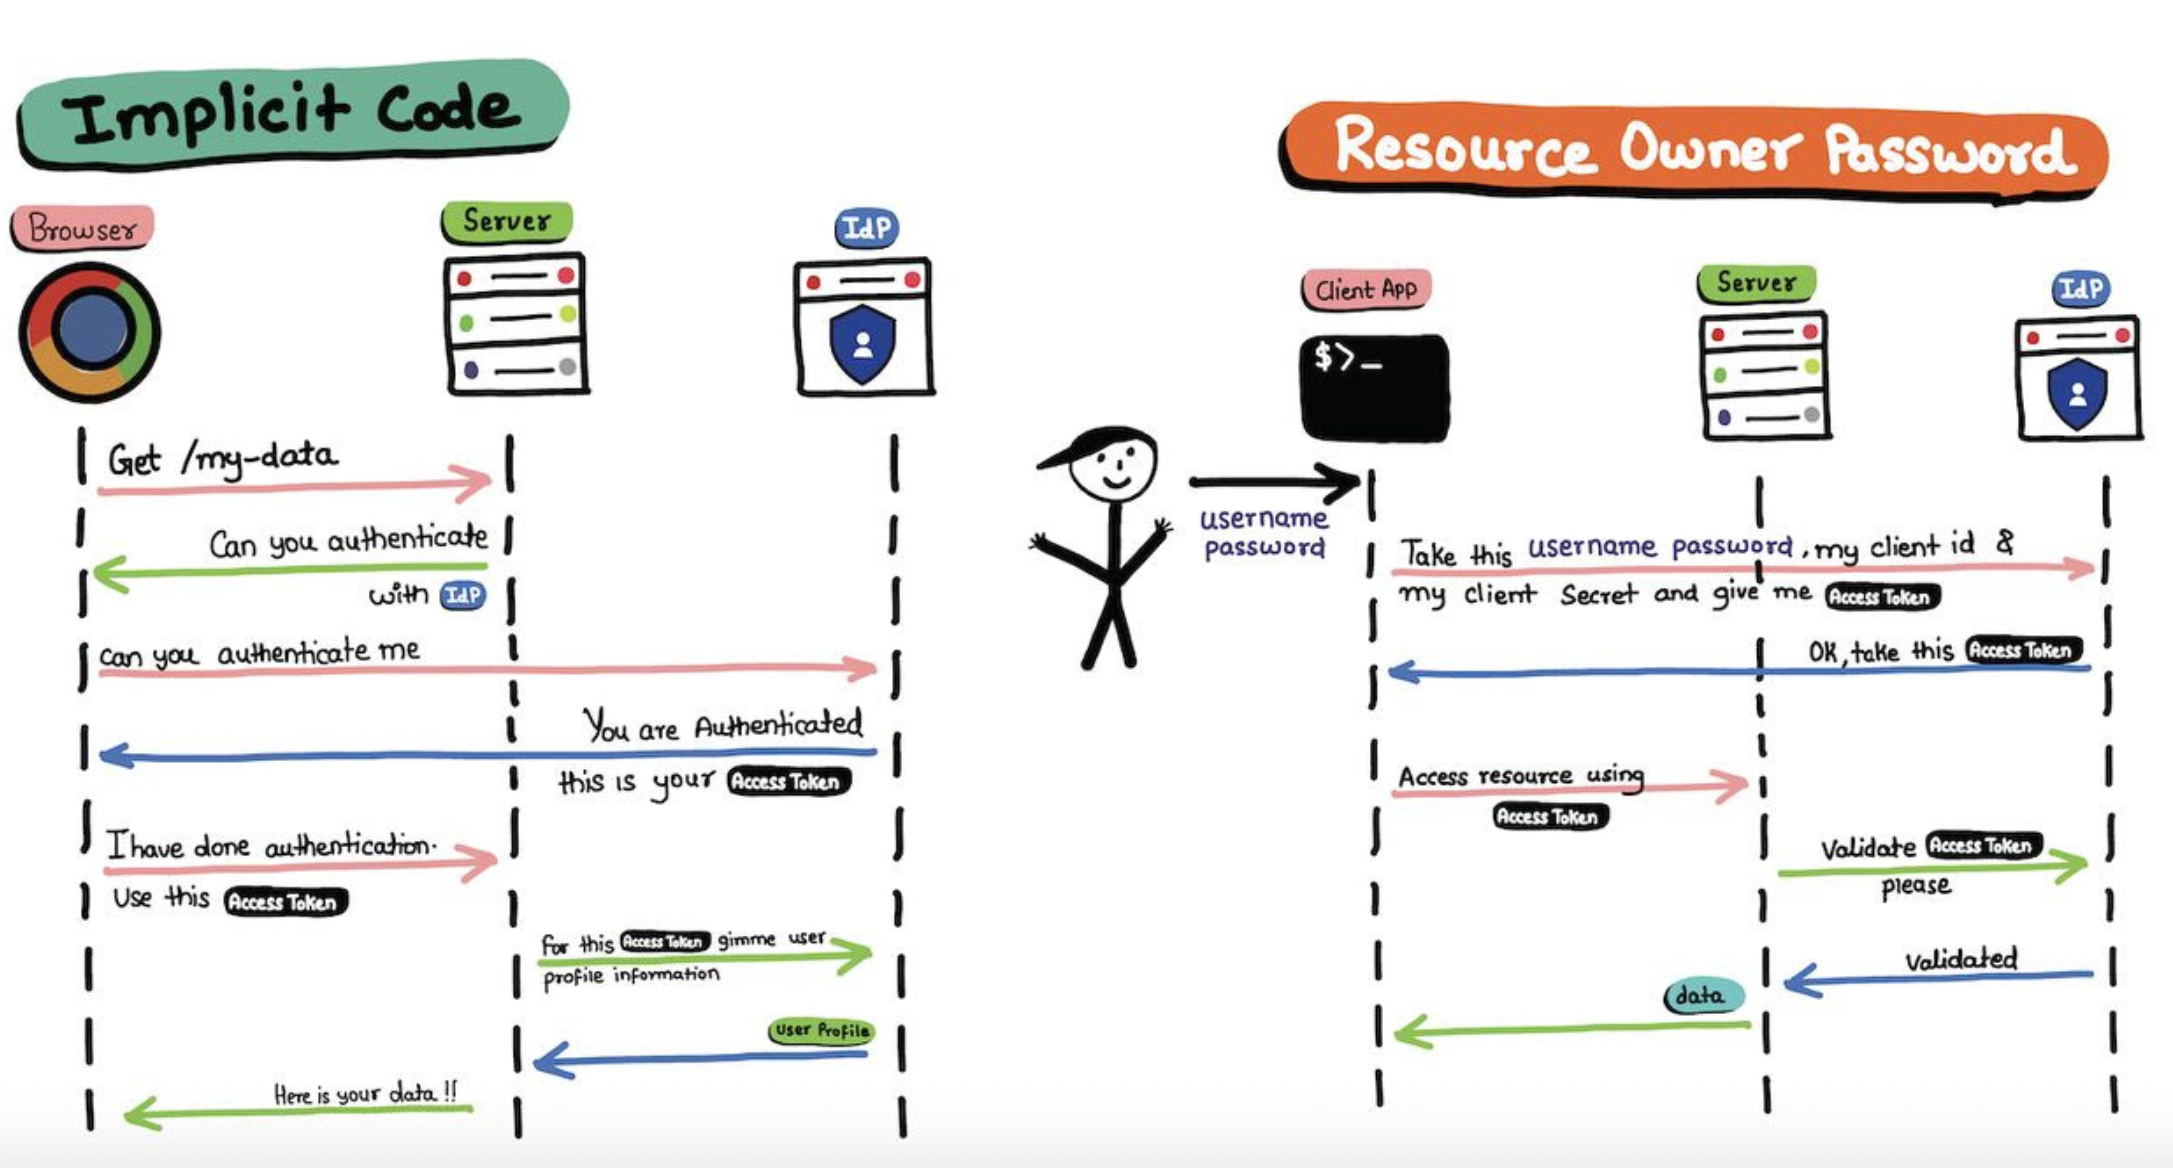 Implicit Code
Browser
Server
IdP
Get /my-data
Can you authenticate
with IdP
can you authenticate me
You are Authenticated
this is your Access Token
I have done authentication.
Use this Access Token
For this Access Token gimme user
profile information
User Profile
Here is your data !!
Resource Owner Password
Client App
Server
IdP
$>_
username
password
Take this username password, my client id &
my client Secret and give me Access Token
OK, take this Access Token
Access resource using
Access Token
Validate Access Token
please
Validated
data